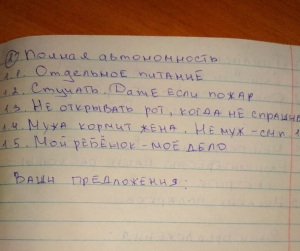 ① Полная автономность
1.1. Отдельное питание
1.2. Стучать. Даже если пожар
1.3 Не открывать рот, когда не
1.4 Мужа кормит жена. Не муж - см п. 1
1.5. Мой ребёнок - моё дело
Ваши предложения: